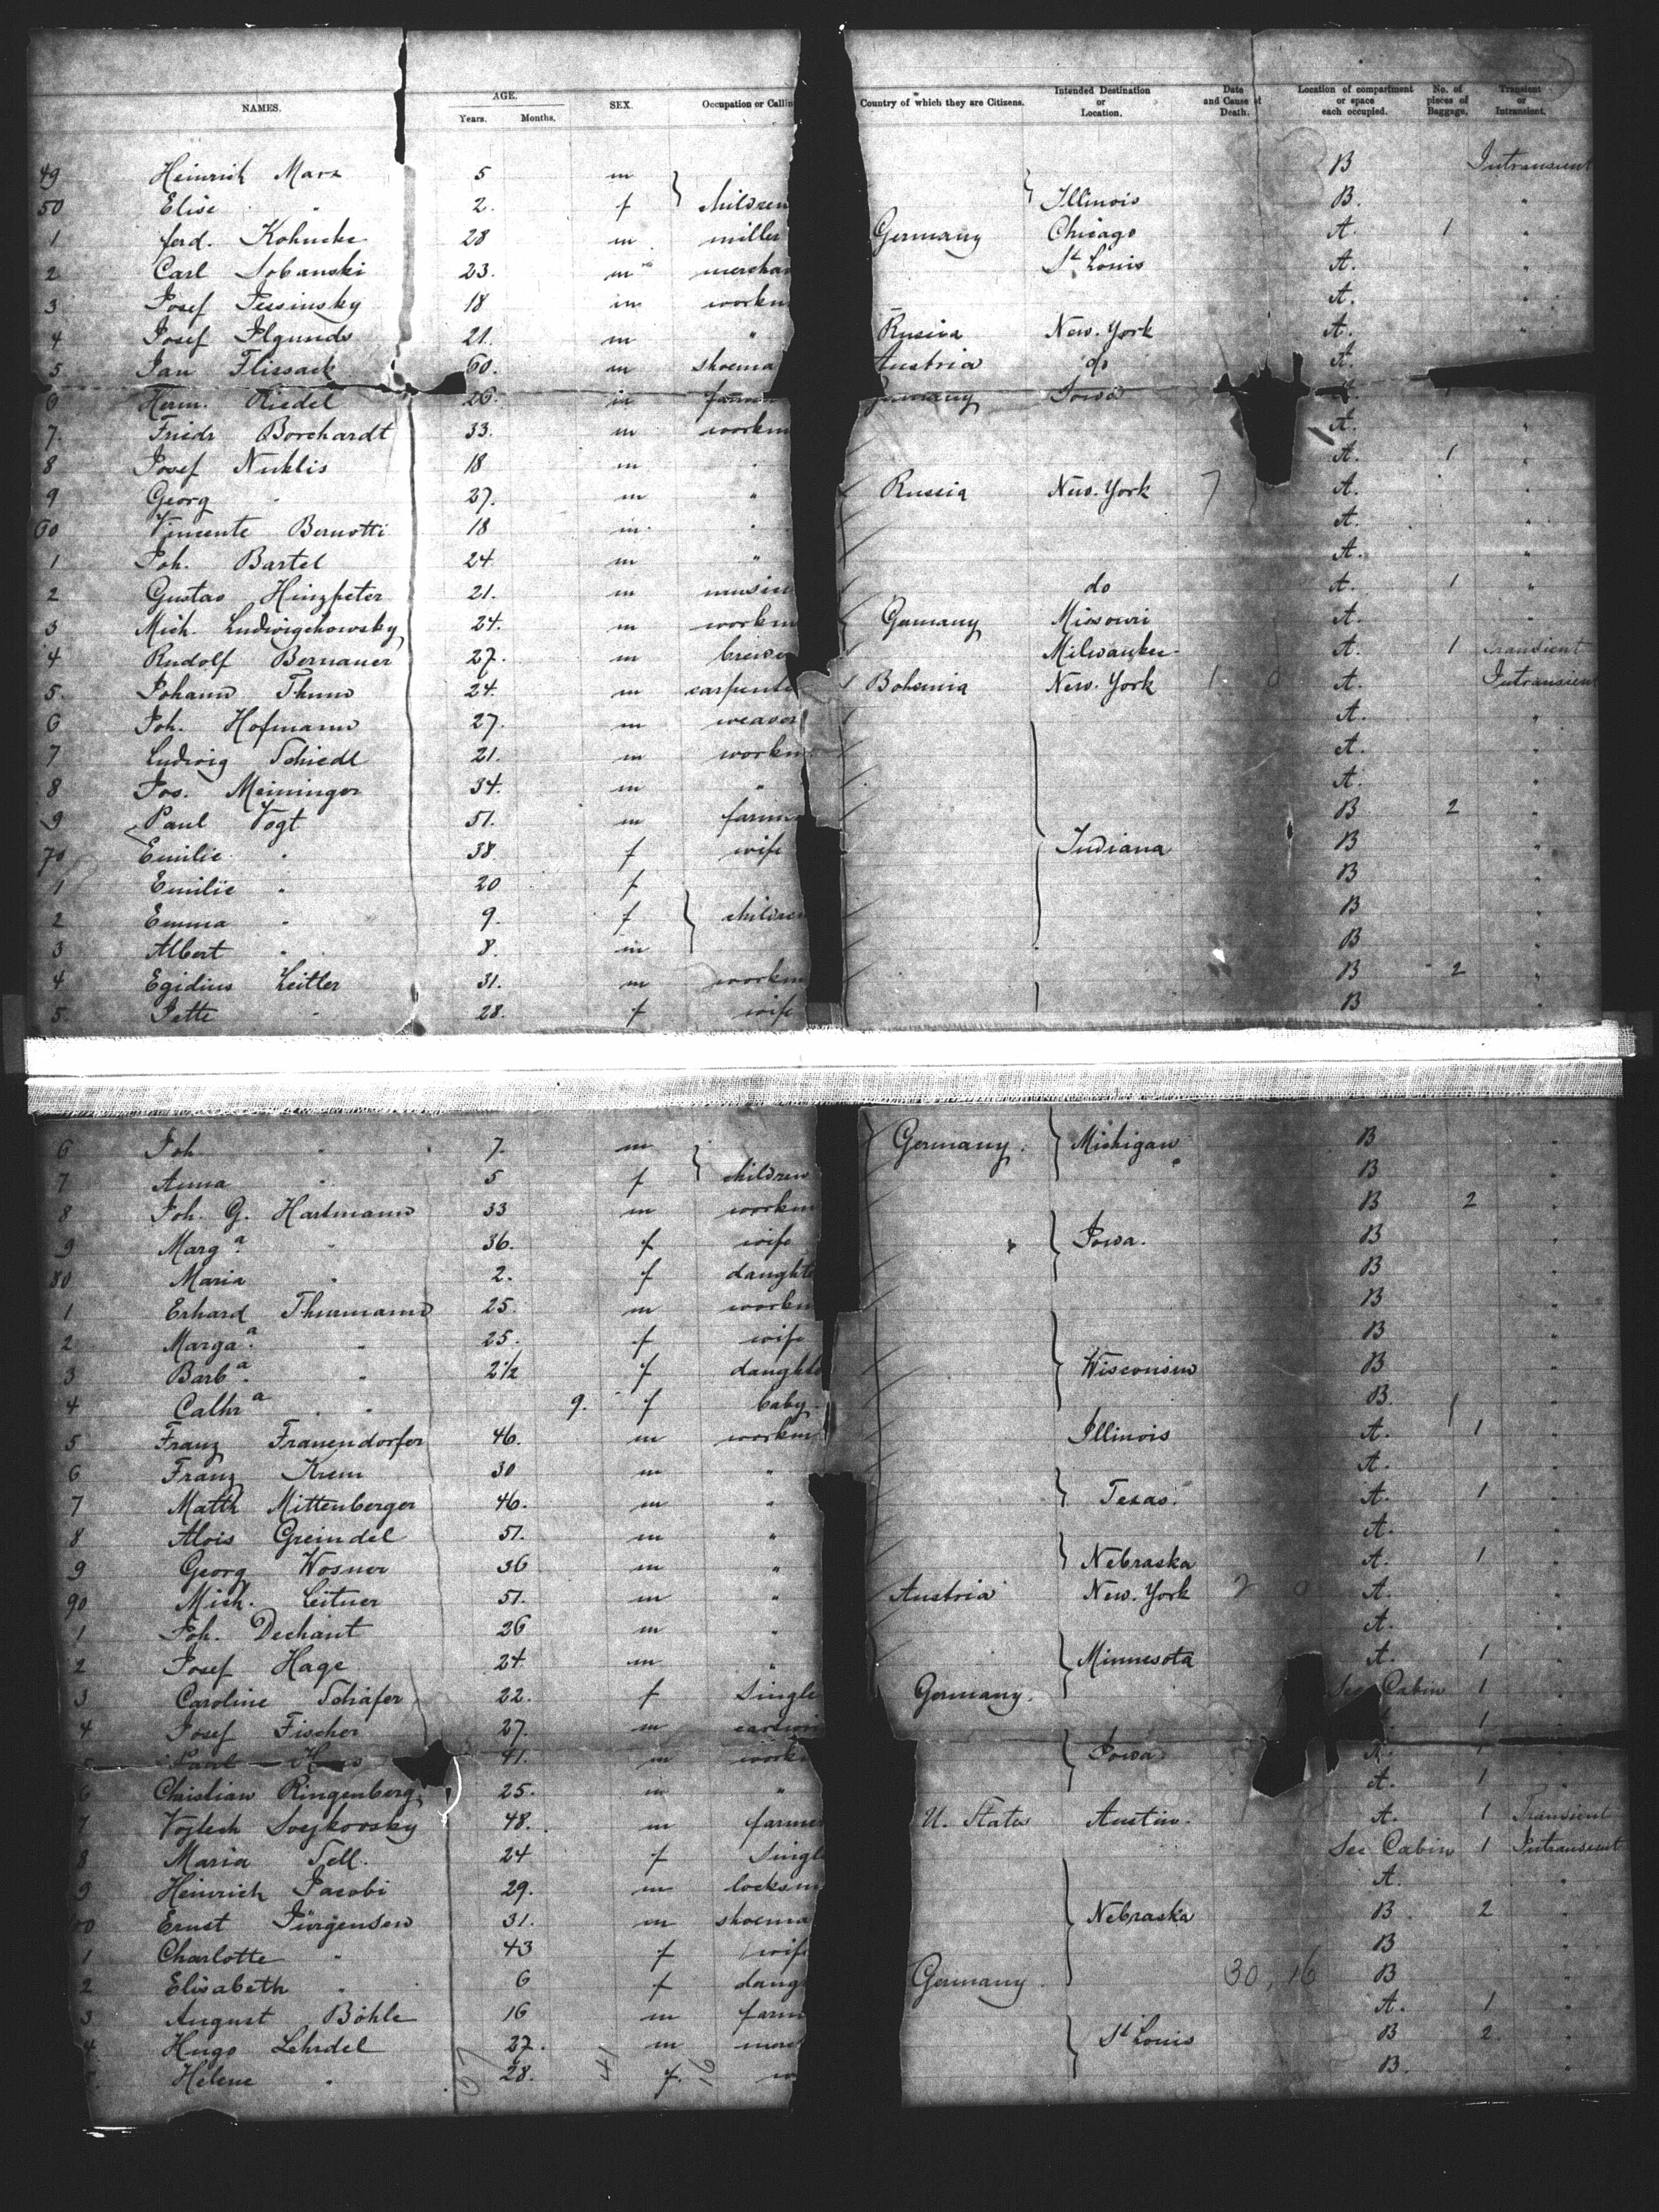 NAMES. AGE. Years. Months. SEX. Occupation or Callin Country of which they are Citizens. Intended Destination or Location. Date and Cause of Death. Location of compartment or space each occupied. No. of pieces of Baggage. Transient or Intransient.
49 Heinrich Marx 5 m B Intransient
50 Elise " 2. f } children } Illinois B. "
1 ferd. Kohncke 28 m miller Germany Chicago A. 1 "
2 Carl Sobanski 23. m merchan St. Louis A. "
3 Josef 18 m workm A. "
4 Josef 21. m " Russia New-York A. "
5 Jan Flissack 60. m shoema Austria do A.
6 Herm. Riedel 26. m farmer Germany Iowa
7. Friedr Borchardt 33. m workm A. "
8 Josef Nuklis 18 m " A. 1 "
9 Georg " 27. m " Russia New-York A. "
60 Vincente Bernotti 18 m " A. "
1 Joh. Bartel 24 m " A. "
2 Gustav Hinzpeter 21. m musici do A. 1 "
3 Mich. Ludwigchowsky 24. m workm Germany Missouri A. "
4 Rudolf Bernauer 27. m brewer Milwaukee A. 1 Transient
5. Johann Thum 24. m carpente Bohemia New-York A. Intransient
6 Joh. Hofmann 27. m weaver A. "
7 Ludwig Schiedl 21. m workm A. "
8 Jos. Meininger 34. m " A. "
9 Paul Vogt 51. m farme B 2 "
70 Emilie " 38 f wife } Indiana B "
1 Emilie " 20 f B "
2 Emma " 9. f } children B "
3 Albert " 8. m B "
4 Egidius Leitler 31. m workm B 2 "
5. Jette " 28. f wife B "
6 Joh " 7. m Germany. } Michigan B "
7 Anna " 5 f } children B "
8 Joh. G. Hartmann 33 m workm B 2 "
9 Marg.a " 36. f wife } Iowa. B "
80 Maria " 2. f daughte B "
1 Erhard Thurmann 25. m workm B "
2 Marga.a " 25. f wife B "
3 Barb.a " 2 1/2 f daughte } Wisconsin B "
4 Cathr a " 9. f baby. B. "
5 Franz Frauendorfer 46. m workm Illinois A. 1 "
6 Franz Krem 30 m " A. "
7 Matth Mittenberger 46. m " } Texas. A. 1 "
8 Alois Greindel 51. m " A. "
9 Georg Wosner 36 m " } Nebraska A. 1 "
90 Mich. Leitner 51. m " Austria New-York A. "
1 Joh. Dechant 26 m " A. "
2 Josef Hage 24 m " } Minnesota A. 1 "
3 Caroline Schäfer 22. f Single Germany. See Cabin 1 "
4 Josef Fischer 27. m 1 "
5 Paul 41. m workm } Iowa A. 1
6 Christian Ringenberg 25. m " A. 1 "
7 Vojtech Svejkovsky 48. m farme U. States Austin. A. 1 Transient
8 Maria Sell. 24 f Singl See Cabin 1 Intransient
9 Heinrich Jacobi 29. m locksm A. "
00 Ernst Jürgensen 31. m shoema } Nebraska B. 2 "
1 Charlotte " 43 f wife B "
2 Elisabeth " 6 f daug Germany. 30, 16 B "
3 August Böhle 16 m farm A. 1 "
4. Hugo Lehrdel 27. m } St Louis B 2. "
Helene " 28. f. B. "